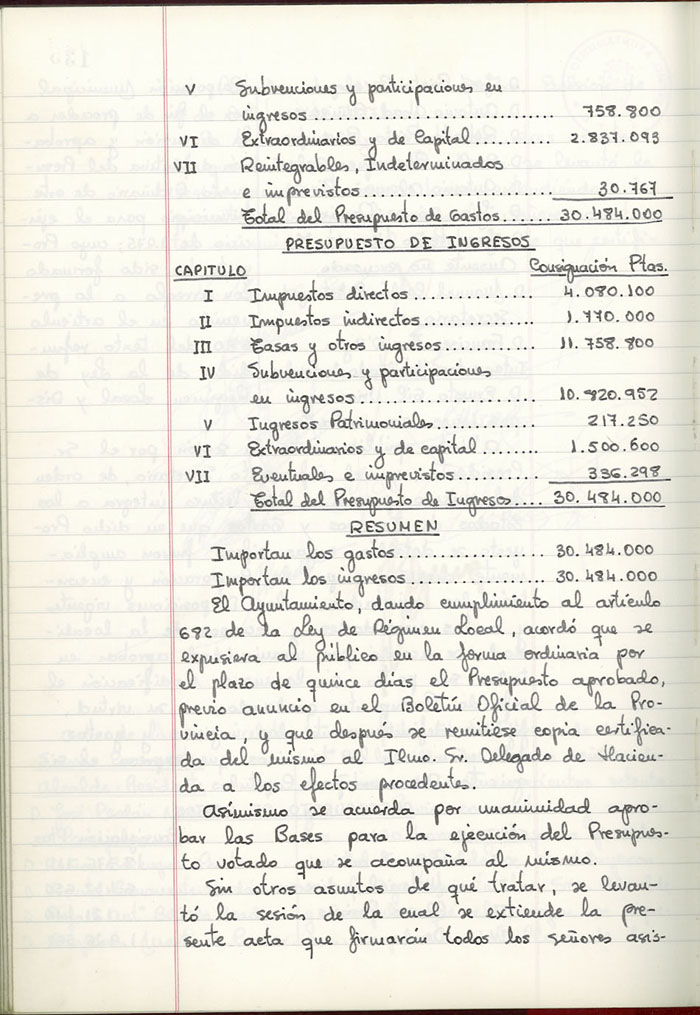 V Subvenciones y participaciones en
ingresos .............................. 758.800
VI Extraordinarios y de Capital .......... 2.837.093
VII Reintegrables, Indeterminados
e imprevistos ........................ 30.767
Total del Presupuesto de Gastos ...... 30.484.000
PRESUPUESTO DE INGRESOS
CAPITULO Consignación Ptas.
I Impuestos directos ............... 4.080.100
II Impuestos indirectos .............. 1.770.000
III Tasas y otros ingresos ............ 11.758.800
IV Subvenciones y participaciones
en ingresos ........................ 10.820.952
V Ingresos Patrimoniales ............. 217.250
VI Extraordinarios y de capital ........ 1.500.600
VII Eventuales e imprevistos ........... 336.298
Total del Presupuesto de Ingresos .... 30.484.000
RESUMEN
Importan los gastos .................. 30.484.000
Importan los ingresos ................ 30.484.000
El Ayuntamiento, dando cumplimiento al artículo
682 de la Ley de Régimen Local, acordó que se
expusiera al público en la forma ordinaria por
el plazo de quince días el Presupuesto aprobado,
previo anuncio en el Boletín Oficial de la Pro-
vincia, y que después se remitiese copia certifica-
da del mismo al Ilmo. Sr. Delegado de Hacien-
da a los efectos procedentes.
Asimismo se acuerda por unanimidad apro-
bar las Bases para la ejecución del Presupues-
to votado que se acompaña al mismo.
Sin otros asuntos de qué tratar, se levan-
tó la sesión de la cual se extiende la pre-
sente acta que firmarán todos los señores asis-